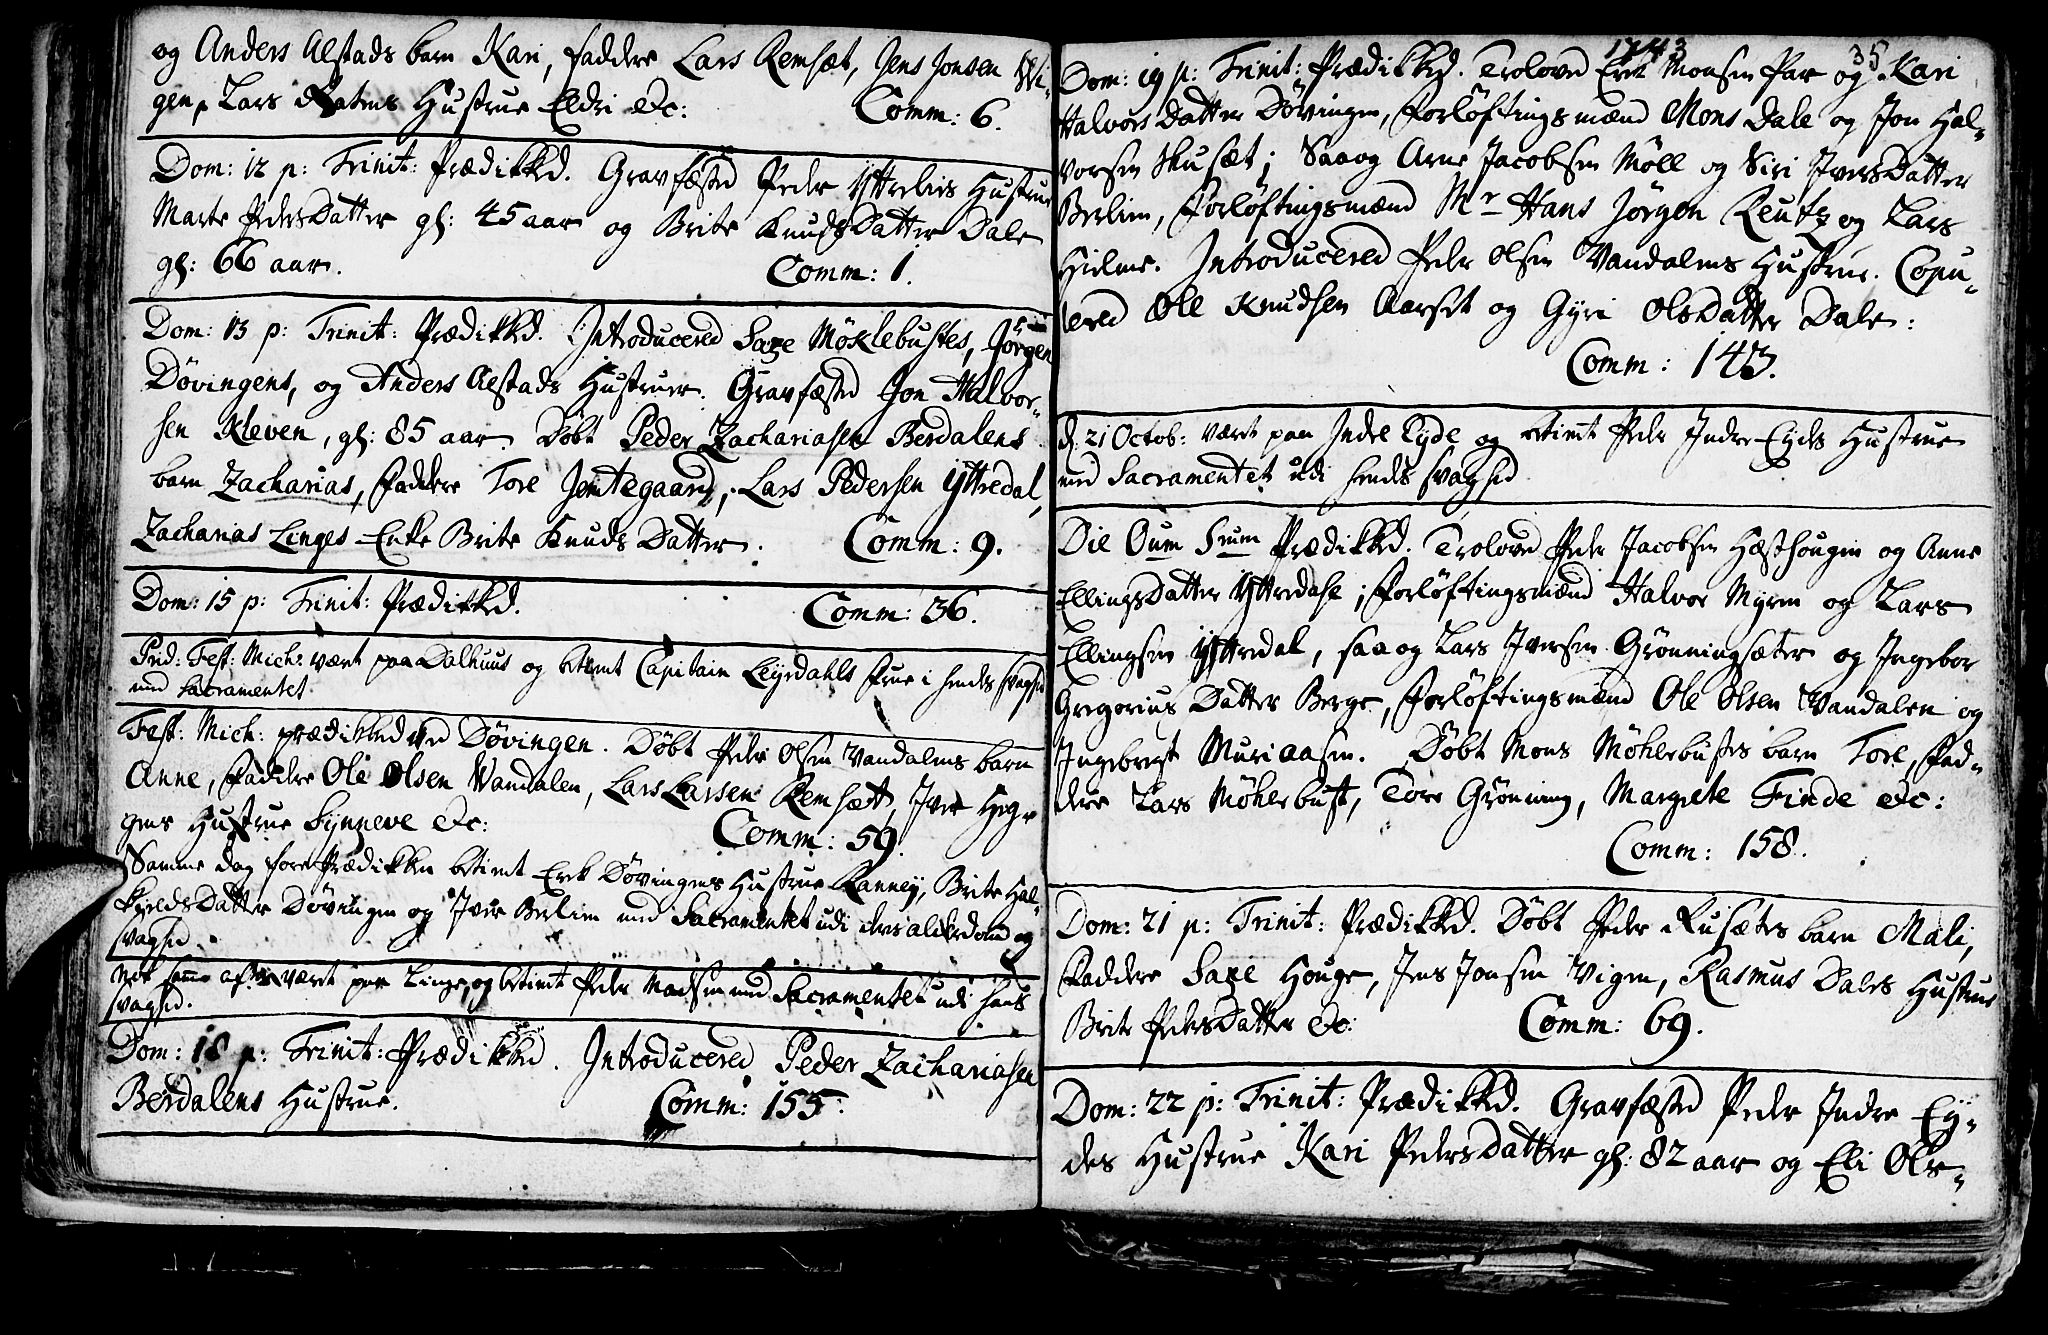 og Anders Alstads barn Kari, faddere Lars Remsæt, Jens Jonsen Wi-
gen, Lars Hustrue Eldri &c: Comm: 6.
Dom: 12 p: Trinit: Prædikked. Gravfæsted Peder Yttrelies Hustrue
Marte PedersDatter gl: 45 aar og Brite KnudsDatter Dale
gl: 66 aar. Comm: 1.
Dom: 13 p: Trinit: Prædikked. Introducered Saxe Möklebustes, Jørgen
Dövingens, og Anders Alstads Hustruer. Gravfæsted Jon Halvor-
sen Kleven, gl: 85 aar. Döbt Peder Zachariasen Berdalens
barn Zacharias, Faddere Tore Jemtegaard, Lars Pedersen Yttredal,
Zacharias Linges Enke Brite Knuds Datter. Comm: 9.
Dom: 15 p: Trinit: Prædikked. Comm: 36.
Prid: Fest: Mich: været paa Dalhuus og betient Capitain Leyrdahls Frue i hendes svaghed
med Sacramentet
Fest: Mich: prædikked ved Dövingen. Döbt Peder Olsen Vandalens barn
Anne, Faddere Ole Olsen Vandalen, Lars Larsen Remsætt, Iver Heg-
gens Hustrue Synneve &c: Comm: 59.
Samme dag före Prædikken betient Erik Dövingens Hustrue Ranney, Brite Hal-
kieldsDatter Dövingen og Iver Berlien med Sacramentet udi deres alderdom og
svaghed.
Nok samme aften været paa Linge, og betient Peder Madsen med Sacramentet udi hans
svaghed.
Dom: 18 p: Trinit: Prædikked. Introducered Peder Zachariasen
Berdalens Hustrue. Comm: 155.
1743 35
Dom: 19 p: Trinit: Prædikked. Trolovd Erik Monsen Par og Kari
HalvorsDatter Dövingen, Forlöftingsmænd Mons Dale og Jon Hal-
vorsen Skusæt; Saa og Arne Jacobsen Möll og Siri IversDatter
Berlien, Forlöftingsmænd Mr Hans Jörgen Reutz og Lars
Hielme. Introducered Peder Olsen Vandalens Hustrue. Copu-
lered Ole Knudsen Aarset og Gyri OlsDatter Dale:
Comm: 143.
d. 21 Octob: været paa Indre Eyde og betient Peder Indre Eydes Hustrue
med Sacramentet udi hendes svaghed
Die Oum Srum Prædikked. Trolovd Peder Jacobsen Hæsthougen og Anne
EllingsDatter Yttredahl; Forlöftingsmænd Halvor Myren og Lars
Ellingsen Yttredal, saa og Lars Iversen Grönningsæter og Ingebor
Gregorius Datter Berge, Forlöftingsmænd Ole Olsen Vandalen og
Ingebrigt Muriaasen. Döbt Mons Möklebustes barn Tore, Fad-
dere Lars Möklebust, Tore Grönning, Margrete Finde &c:
Comm: 158.
Dom: 21 p: Trinit: Prædikked. Döbt Peder Rusætes barn Mali,
Faddere Saxe Houge, Jens Jonsen Vigen, Rasmus Dales Hustrue
Brite PedersDatter &c: Comm: 69.
Dom: 22 p: Trinit: Prædikked. Gravfæsted Peder Indre Ey-
des Hustrue Kari PedersDatter gl: 82 aar og Eli Ols-